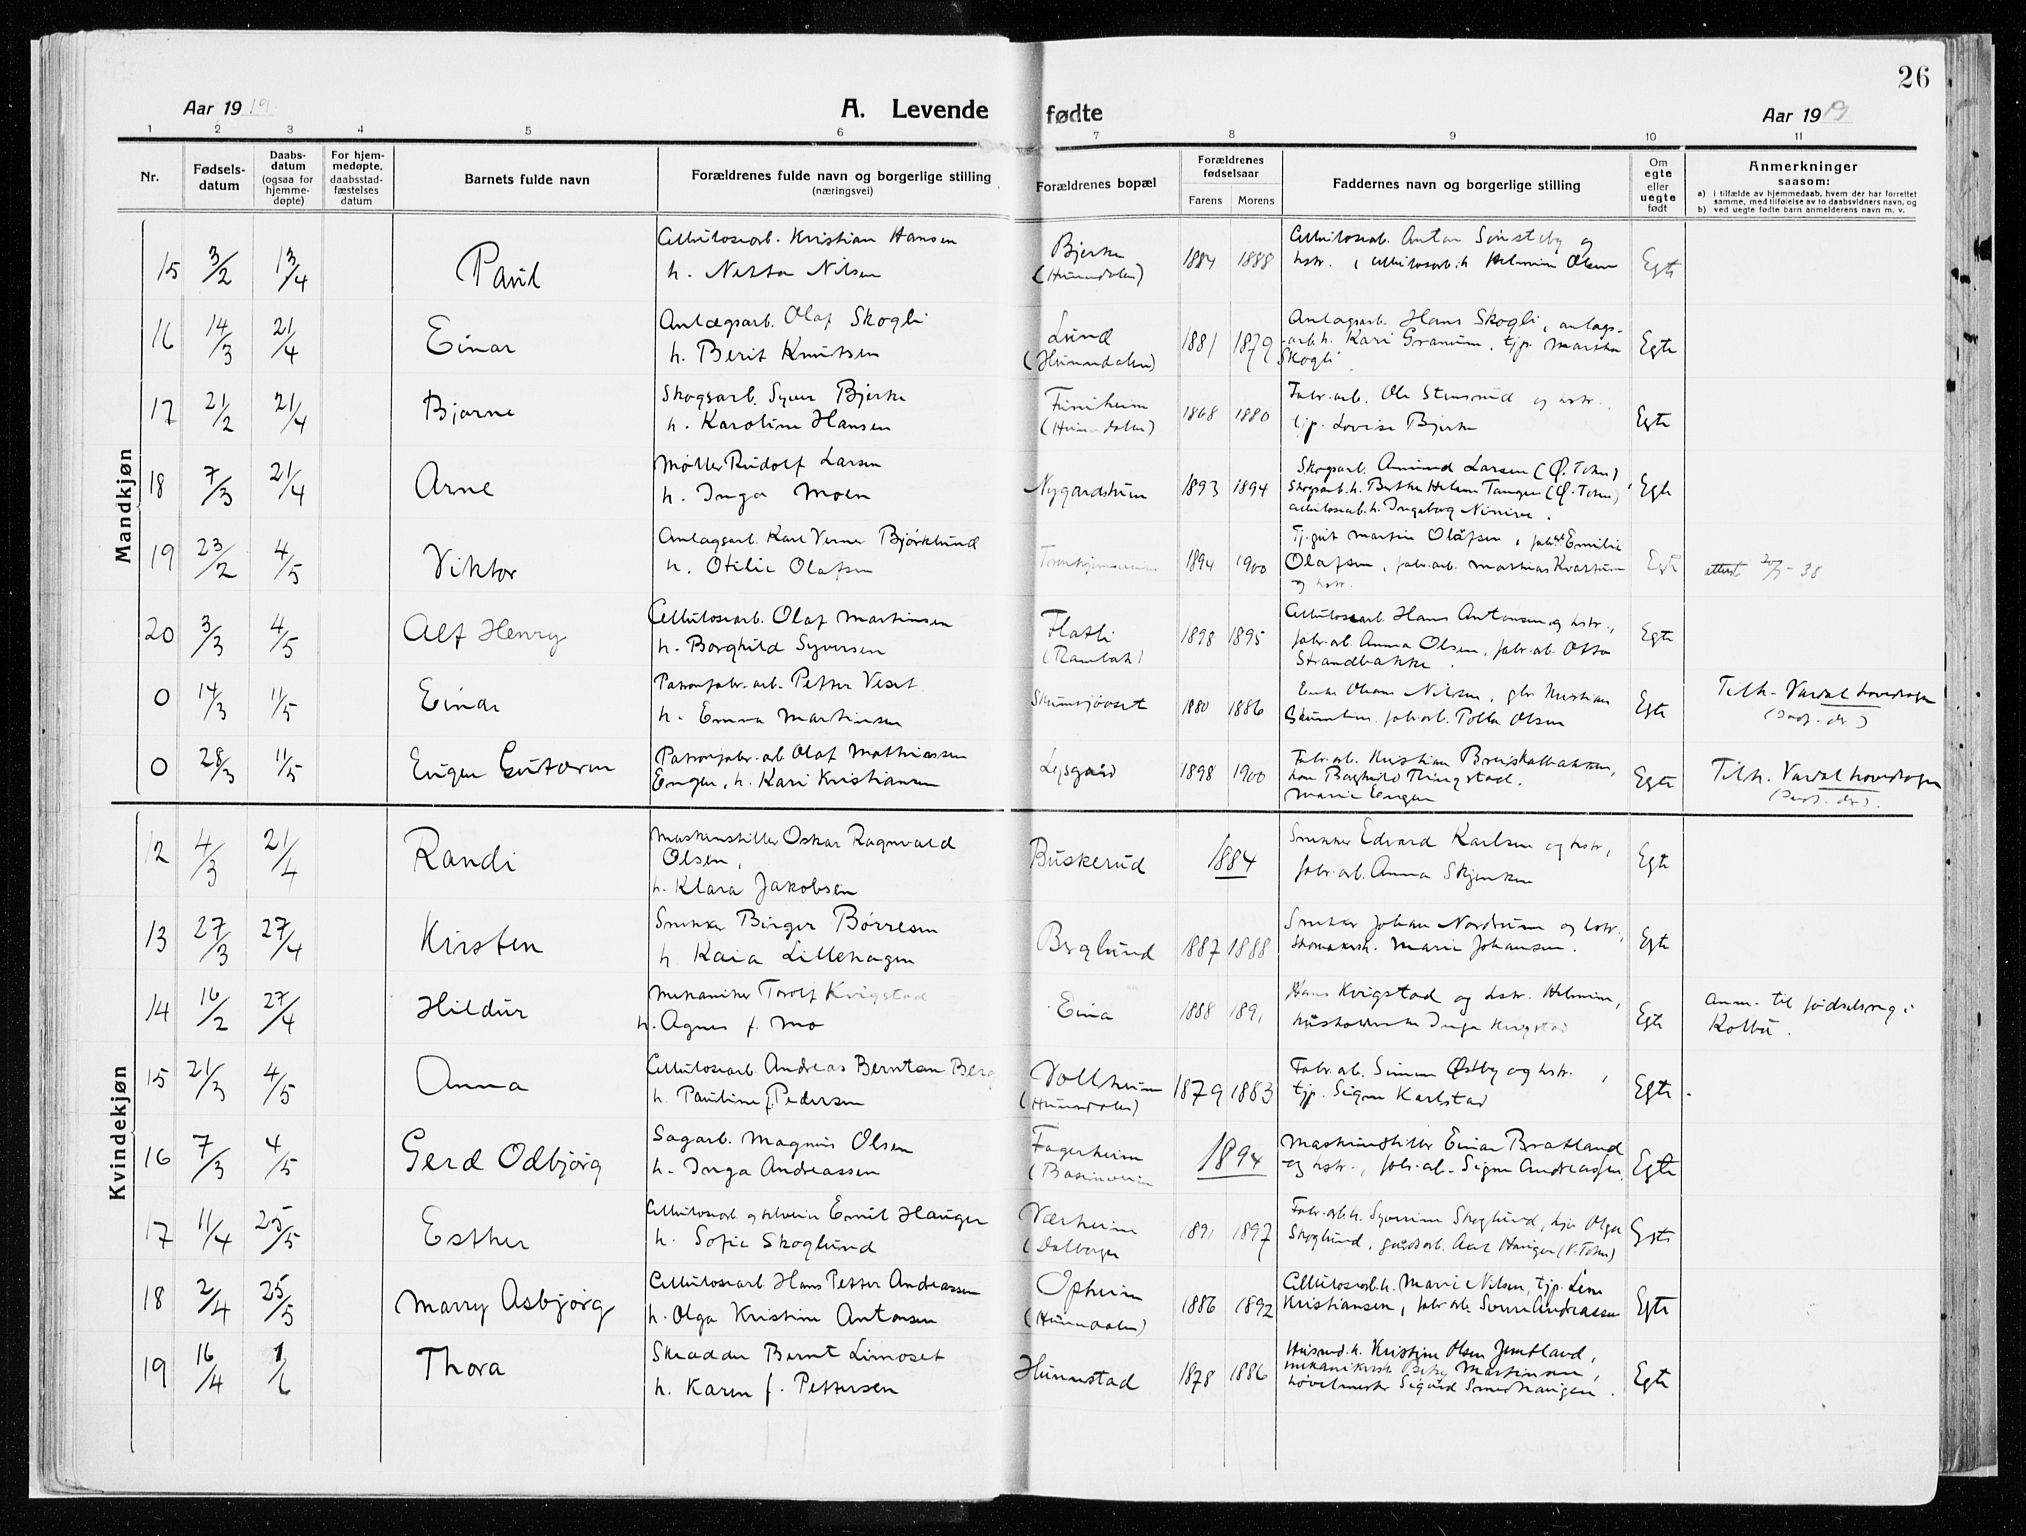 26
Aar 1919
A. Levende fødte
Aar 1919
1 2 3 4 5 6 7 8 9 10 11
Nr.
Fødsels-
datum
Daabs-
datum
(ogsaa for
hjemme-
døpte)
For hjem-
medøpte,
daabsstad-
fæstelses
datum
Barnets fulde navn
Forældrenes fulde navn og borgerlige stilling
(næringsvei)
Forældrenes bopæl
Forældrenes
fødselsaar
Farens Morens
Faddernes navn og borgerlige stilling
Om
egte
eller
uegte
født
Anmerkninger
saasom:
a) i tilfælde av hjemmedaab, hvem der har forrettet
samme, med tilføielse av to daabsvidners navn, og
b) ved uegte fødte barn anmelderens navn m. v.
Mandkjøn
15 3/2 13/4 Paul
Cellulosearb. Kristian Hansen
h. Netta Nilsen
Bjerke
(Hunndalen)
1884 1888
Cellulosearb. Anton Sønsteby og
hstr., cellulosearb.h. Helmine Olsen
Egte
16 14/3 21/4 Einar
Anlægsarb. Olaf Skogli
h. Berit Knutsen
Lund
(Hunndalen)
1881 1879
Anlagsarb. Hans Skogli, anlags-
arb.h. Kari Granum, tjp. Martha
Skogli
Egte
17 21/2 21/4 Bjarne
Skogsarb. Syver Bjerke
h. Karoline Hansen
Furuheim
(Hunndalen)
1868 1880
Fabr.arb. Ole Stensrud og hstr.,
tjp. Lovise Bjerke
Egte
18 7/3 21/4 Arne
Møller Rudolf Larsen
h. Inga Moen
Nygardstun
1893 1894
Skogsarb. Amund Larsen (Ø. Toten),
Skogsarb.h. Berthe Helene Tangen (Ø. Toten),
cellulosearb.h. Ingeborg
Egte
19 23/2 4/5 Viktor
Anlagsarb. Karl Verner Bjørklund
h. Otilie Olafsen
1894 1900
Tj.gut Martin Olafsen, Emilie
Olafsen, fabr.arb. Mathias Kvartum
og hstr.
Egte
attest 20/5-38
20 3/3 4/5 Alf Henry
Cellulosearb. Olaf Martinsen
h. Borghild Syversen
Flatli
1898 1895
Cellulosearb. Hans Antonsen og hstr.,
fabr.arb. Anna Olsen, fabr.arb. Otto
Strandbakke.
Egte
0 14/3 11/5 Einar
Patronfabr.arb. Petter Veset
h. Emma Martinsen
Skumsjøvset
1880 1886
Enke Nilsen, gbr. Kristian
fabr.arb. Olsen
Egte
Tilh. Vardal hovedsogn
0 28/3 11/5 Eugen Guttorm
Patronfabr.arb. Olaf Mathiassen
Engen, h. Kari Kristiansen
Lysgaard
1898 1900
Fabr.arb. Kristian Breiskallbakken,
Borghild Thingstad,
Marie Engen
Egte
Tilh. Vardal hovedsogn
Kvindekjøn
12 4/3 21/4 Randi
Maskinstiller Oskar Ragnvald
Olsen,
h. Klara Jakobsen
Buskerud
1884
Snekker Edvard Karlsen og hstr.,
fabr.arb. Anna Skjenken
Egte
13 27/3 27/4 Kirsten
Snekker Birger Børresen
h. Kaia Lillehagen
Berglund
1887 1888
Snekker Johan Nordrum og hstr.,
Skomakerh. Marie Johansen.
Egte
14 16/2 27/4 Hildur
Mekaniker Torolf Kvigstad
h. Agnes f. Mo
Eina
1888 1891
Hans Kvigstad og hstr. Helmine,
husholderske Inga Kvigstad
Egte
Anm. til fødselsreg. i
Kolbu.
15 21/3 4/5 Anna
Cellulosearb. Andreas Berntsen Berg
h. Pauline f. Pedersen
Vollheim
(Hunndalen)
1879 1883
Fabr.arb. Simen Østby og hstr.,
tjp. Signe Karlstad
Egte
16 7/3 4/5 Gerd Odbjørg
Sagarb. Magnus Olsen
h. Inga Andreassen
Fagerheim
1894
Maskinstiller Einar Bratland
og hstr., fabr.arb. Signe Andreassen.
Egte
17 11/4 25/5 Esther
Cellulosearb. og selveier Emil Hauger
h. Sofie Skoglund
Værheim
1891 1897
Fabr.arb.h. Syverine Skoglund, Olga
Skoglund, gaardsarb. Axel Hauger (V. Toten)
Egte
18 2/4 25/5 Marry Asbjørg
Cellulosearb. Hans Petter Andreassen
h. Olga Kristine Antonsen
Opheim
(Hunndalen)
1886 1892
Cellulosearb.h. Marie Nilsen, tjp. Lina
Kristiansen, fabr.arb. Andreassen
Egte
19 16/4 1/6 Thora
Skrædder Bernt Limoset
h. Karen f. Pettersen
Hunnstad
1878 1886
Husmd.h. Kristine Olsen Jemtland,
mekanikersk. Betzy Martinsen,
høvelmester Sigurd Smedhaugen.
Egte